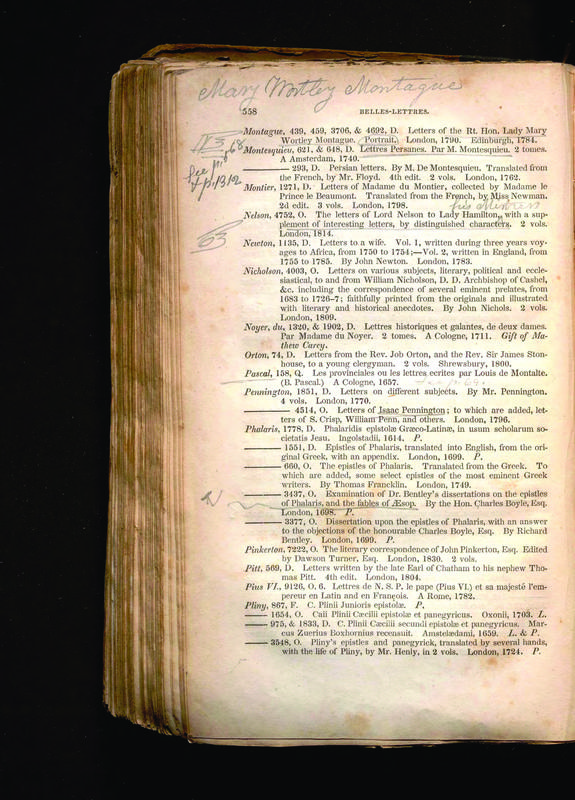 Mary Wortley Montague
558 BELLES-LETTRES.
Montague, 439, 459, 3706, & 4692, D. Letters of the Rt. Hon. Lady Mary
Wortley Montague. Portrait. London, 1790. Edinburgh, 1784.
Montesquieu, 621, & 648, D. Lettres Persanes. Par M. Montesquieu. 2 tomes.
A Amsterdam, 1740.
——— 293, D. Persian letters. By M. De Montesquieu. Translated from
the French, by Mr. Floyd. 4th edit. 2 vols. London, 1762.
Montier, 1271, D. Letters of Madame du Montier, collected by Madame le
Prince le Beaumont. Translated from the French, by Miss Newman.
2d edit. 3 vols. London, 1798.
Nelson, 4752, O. The letters of Lord Nelson to Lady Hamilton, with a sup-
plement of interesting letters, by distinguished characters. 2 vols.
London, 1814.
63
Newton, 1135, D. Letters to a wife. Vol. 1, written during three voy-
ages to Africa, from 1750 to 1754;—Vol. 2, written in England, from
1755 to 1785. By John Newton. London, 1783.
Nicholson, 4003, O. Letters on various subjects, literary, political and eccle-
siastical, to and from William Nicholson, D. D. Archbishop of Cashel,
&c. including the correspondence of several eminent prelates, from
1683 to 1726-7; faithfully printed from the originals and illustrated
with literary and historical anecdotes. By John Nichols. 2 vols.
London, 1809.
Noyer, du, 1320, & 1902, D. Lettres historiques et galantes, de deux dames.
Par Madame du Noyer. 2 tomes. A Cologne, 1711. Gift of Ma-
thew Carey.
Orton, 74, D. Letters from the Rev. Job Orton, and the Rev. Sir James Ston-
house, to a young clergyman. 2 vols. Shrewsbury, 1800.
Pascal, 158, Q. Les provinciales ou les lettres ecrites par Louis de Montalte.
(B. Pascal.) A Cologne, 1657.
Pennington, 1851, D. Letters on different subjects. By Mr. Pennington.
4 vols. London, 1770.
——— 4514, O. Letters of Isaac Pennington; to which are added, let-
ters of S. Crisp, William Penn, and others. London, 1796.
Phalaris, 1778, D. Phalaridis epistolæ Græco-Latinæ, in usum scholarum so-
cietatis Jesu. Ingolstadii, 1614. P.
——— 1551, D. Epistles of Phalaris, translated into English, from the ori-
ginal Greek, with an appendix. London, 1699. P.
——— 660, O. The epistles of Phalaris. Translated from the Greek. To
which are added, some select epistles of the most eminent Greek
writers. By Thomas Francklin. London, 1749.
——— 3437, O. Examination of Dr. Bentley's dissertations on the epistles
of Phalaris, and the fables of Æsop. By the Hon. Charles Boyle, Esq.
London, 1698. P.
——— 3377, O. Dissertation upon the epistles of Phalaris, with an answer
to the objections of the honourable Charles Boyle, Esq. By Richard
Bentley. London, 1699. P.
Pinkerton, 7222, O. The literary correspondence of John Pinkerton, Esq. Edited
by Dawson Turner, Esq. London, 1830. 2 vols.
Pitt, 569, D. Letters written by the late Earl of Chatham to his nephew Tho-
mas Pitt. 4th edit. London, 1804.
Pius VI., 9126, O. 6. Lettres de N. S. P. le pape (Pius VI.) et sa majesté l'em-
pereur en Latin and en François. A Rome, 1782.
Pliny, 867, F. C. Plinii Junioris epistolæ. P.
——— 1654, O. Caii Plinii Cæcilii epistolæ et panegyricus. Oxonii, 1703. L.
——— 975, & 1833, D. C. Plinii Cæcilii secundi epistolæ et panegyricus. Mar-
cus Zuerius Boxhornius recensuit. Amstelædami, 1659. L. & P.
——— 3548, O. Pliny's epistles and panegyrick, translated by several hands,
with the life of Pliny, by Mr. Henly, in 2 vols. London, 1724. P.